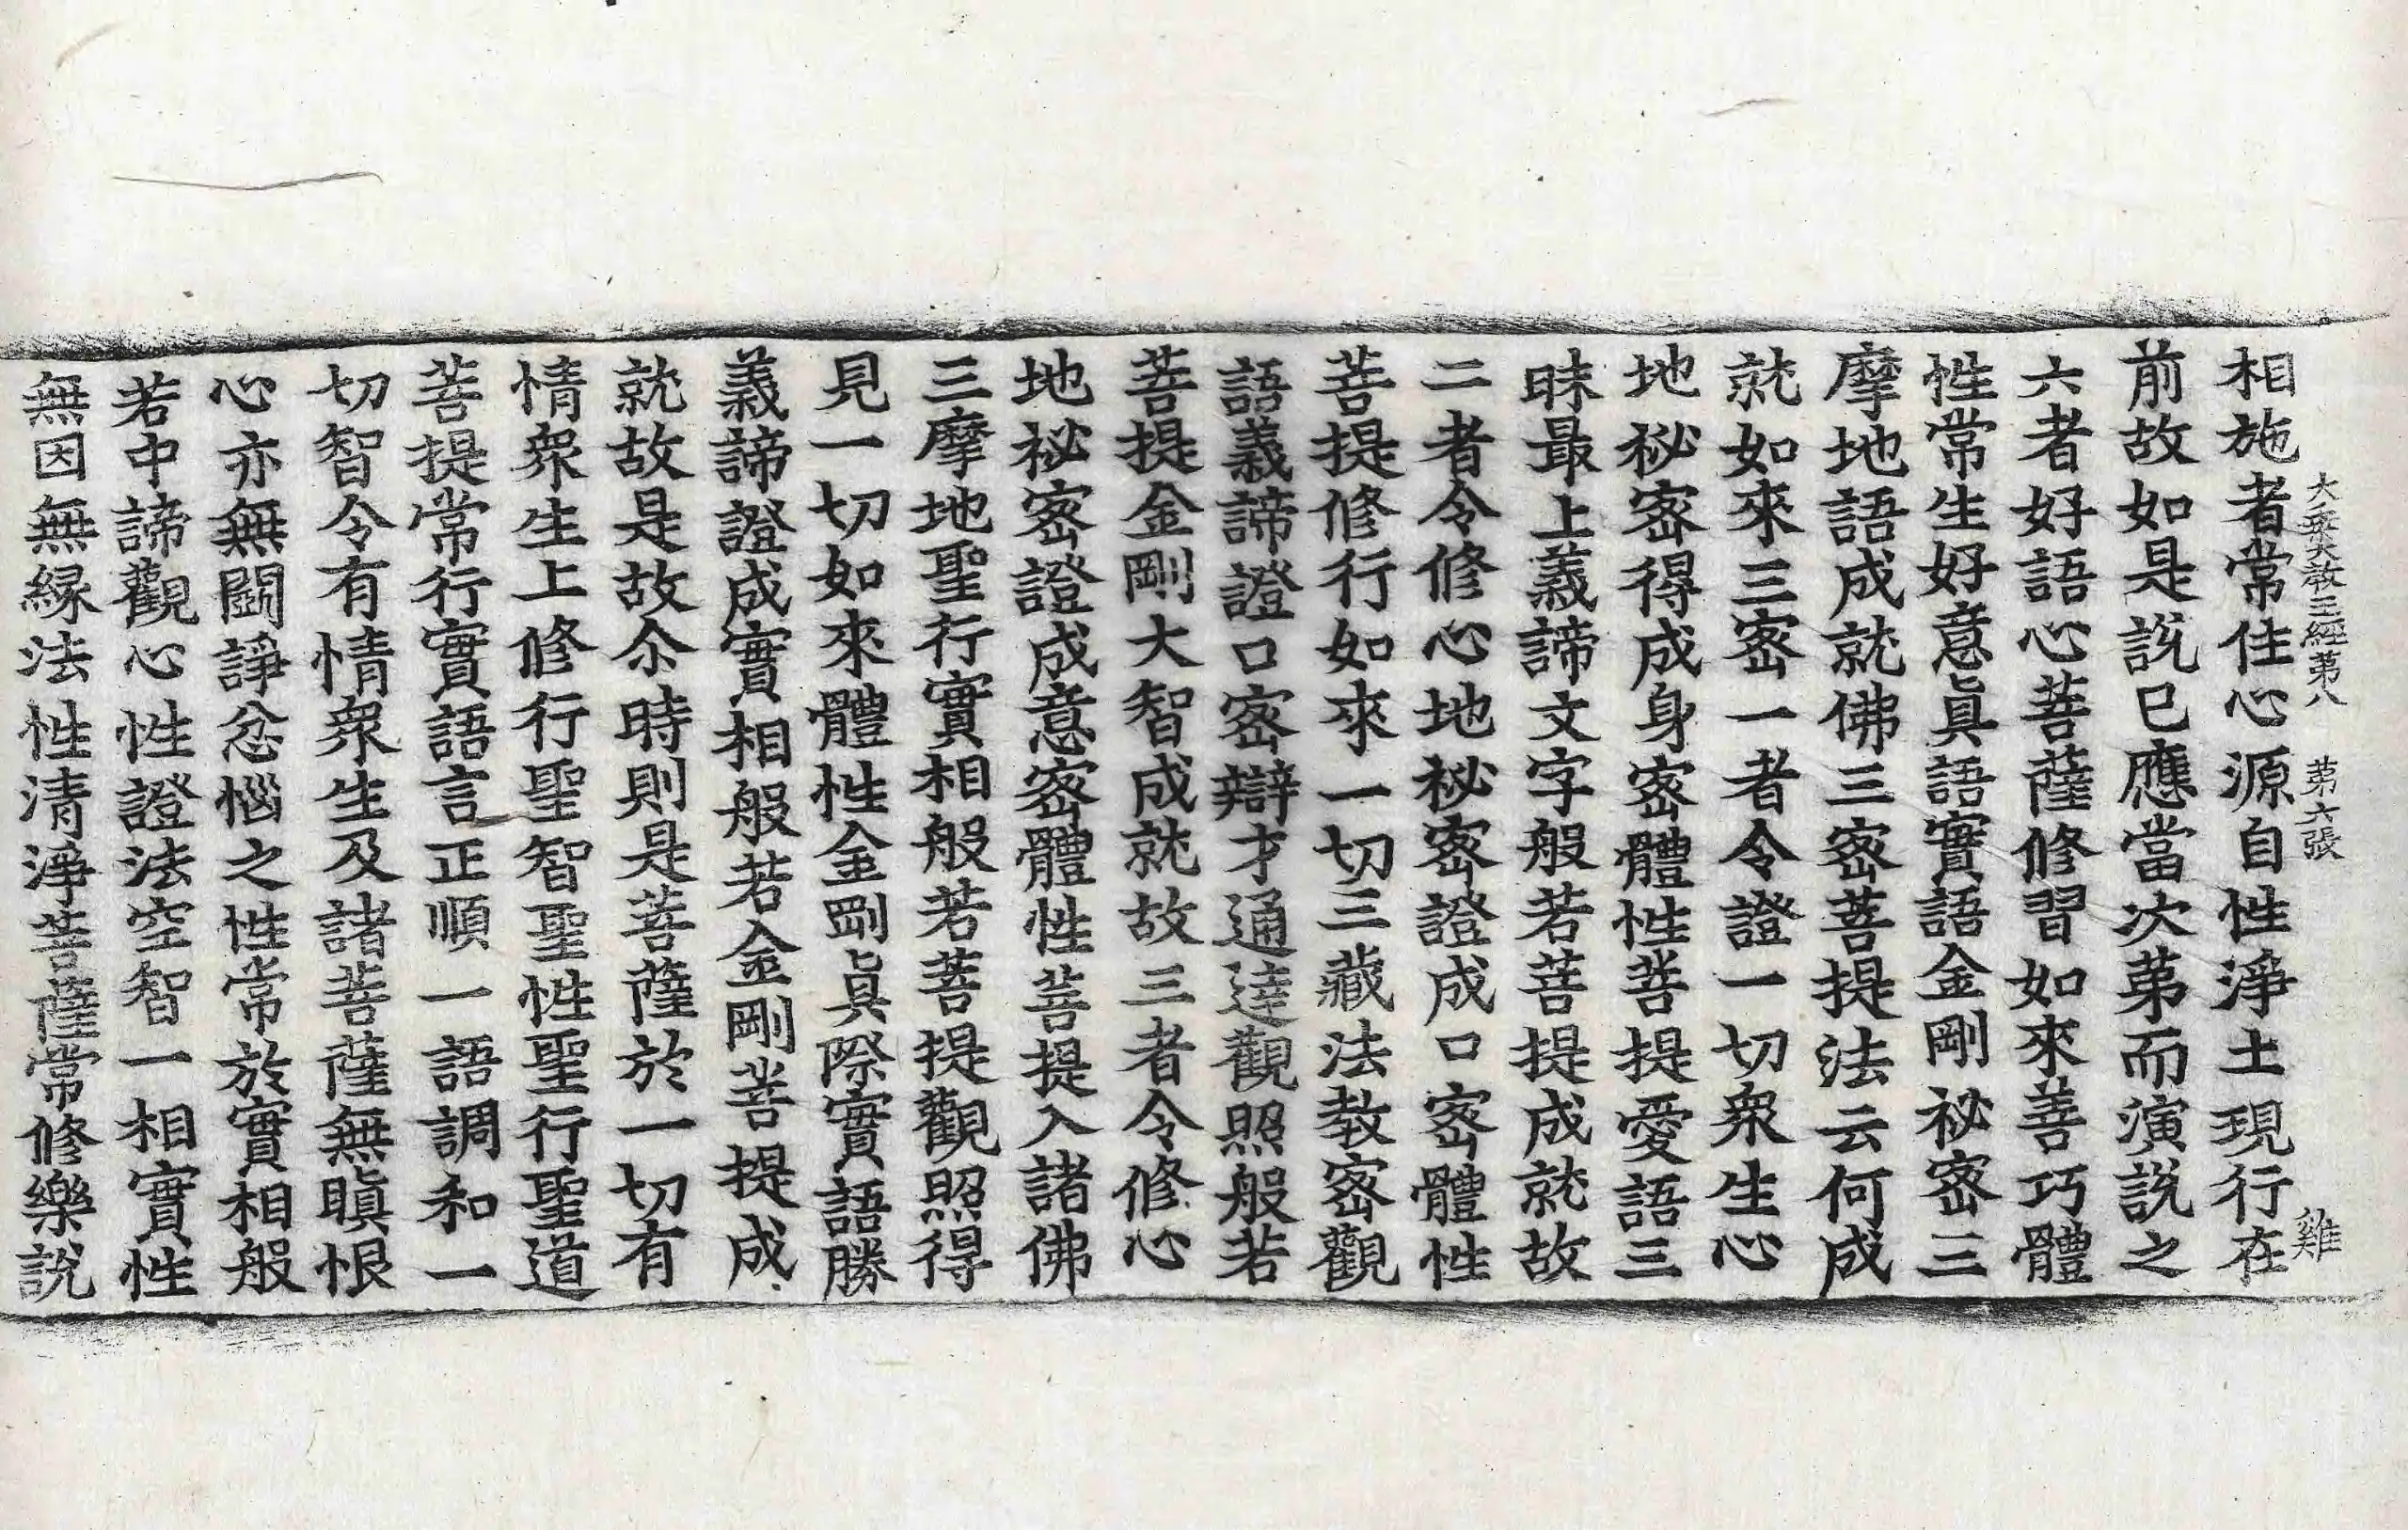 大乗大教王經第八 第六張 雞
相施者常住心源自性淨土現行在
前故如是說已應當次第而演說之
六者好語心菩薩修習如來善巧體
性常生好意眞語實語金剛祕密三
摩地語成就佛三密菩提法云何成
就如來三密一者令證一切衆生心
地祕密得成身密體性菩提愛語三
昧最上義諦文字般若菩提成就故
二者令修心地祕密證成口密體性
菩提修行如來一切三藏法教密觀
語義諦證口密辯才通達觀照般若
菩提金剛大智成就故三者令修心
地祕密證成意密體性菩提入諸佛
三摩地聖行實相般若菩提觀照得
見一切如來體性金剛眞際實語勝
義諦證成實相般若金剛菩提成
就故是故尒時則是菩薩於一切有
情衆生上修行聖智聖性聖行聖道
菩提常行實語言正順一語調和一
切智令有情衆生及諸菩薩無瞋恨
心亦無鬪諍忿惱之性常於實相般
若中諦觀心性證法空智一相實性
無因無緣法性清淨菩薩常修樂說